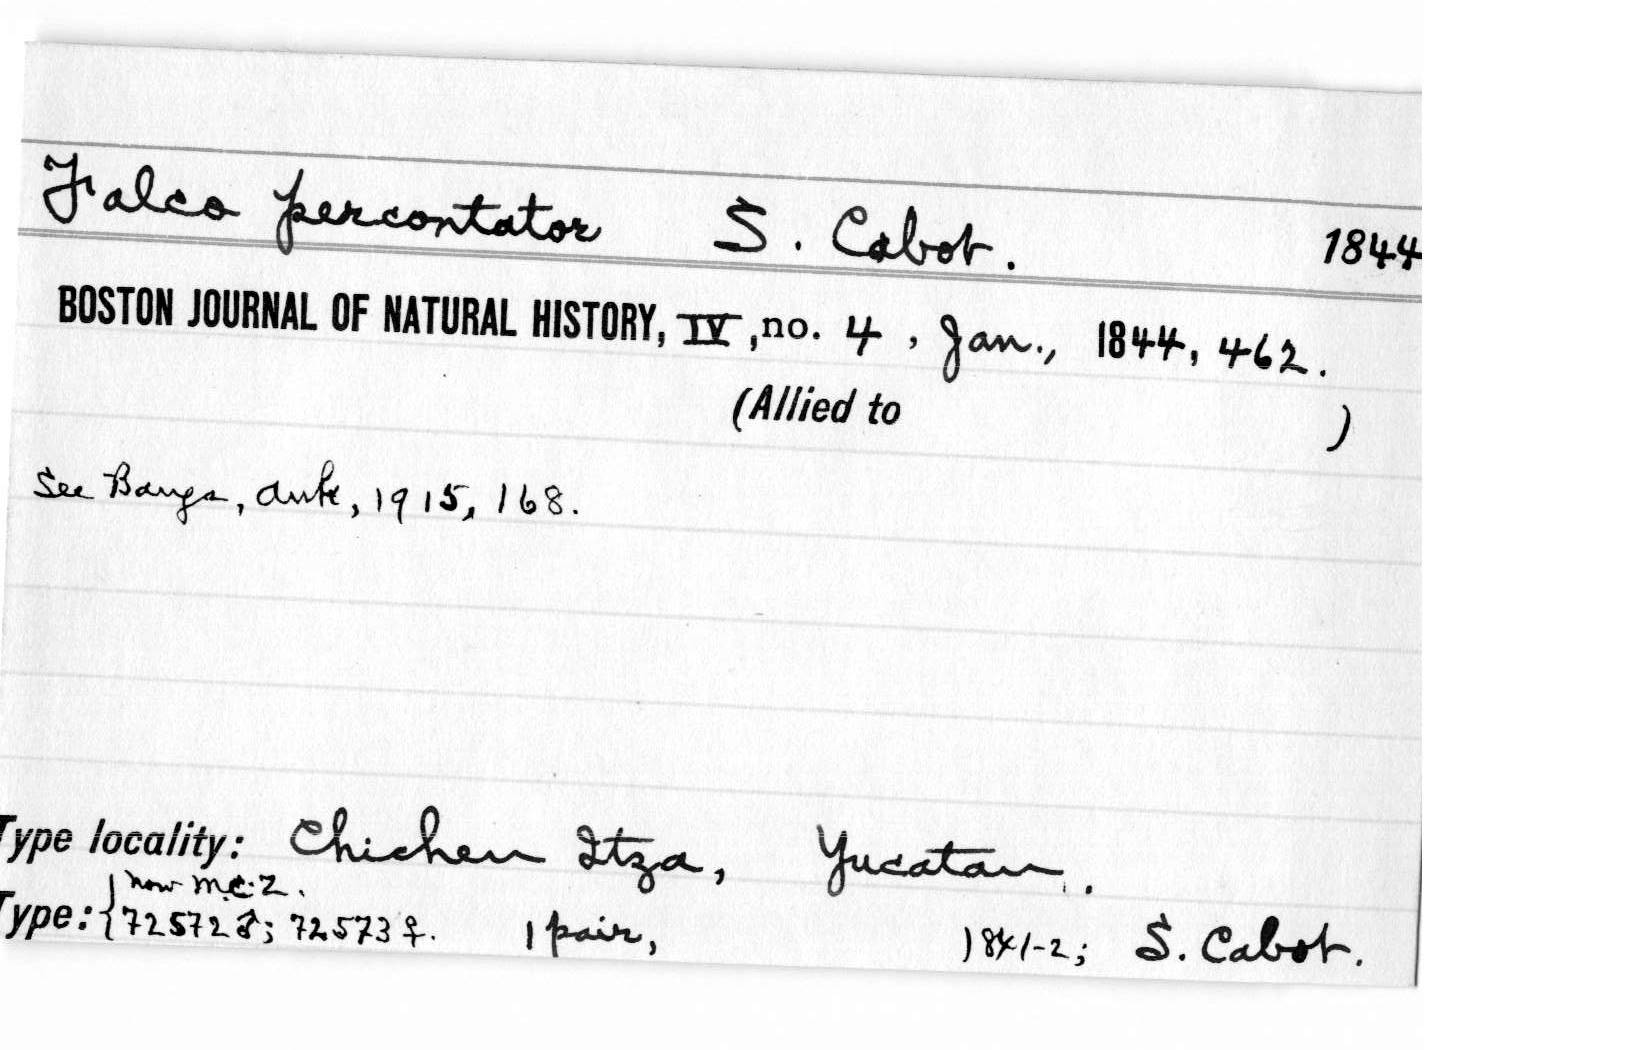 Falco percontator S. Cabot. 1844
BOSTON JOURNAL OF NATURAL HISTORY, IV, no. 4, Jan., 1844, 462.
(Allied to )
See Bangs, Auk, 1915, 168.
Type locality: Chichen Itza, Yucatan.
now M.C.Z.
Type: {72572♂; 72573♀. 1 pair, 1841-2; S. Cabot.